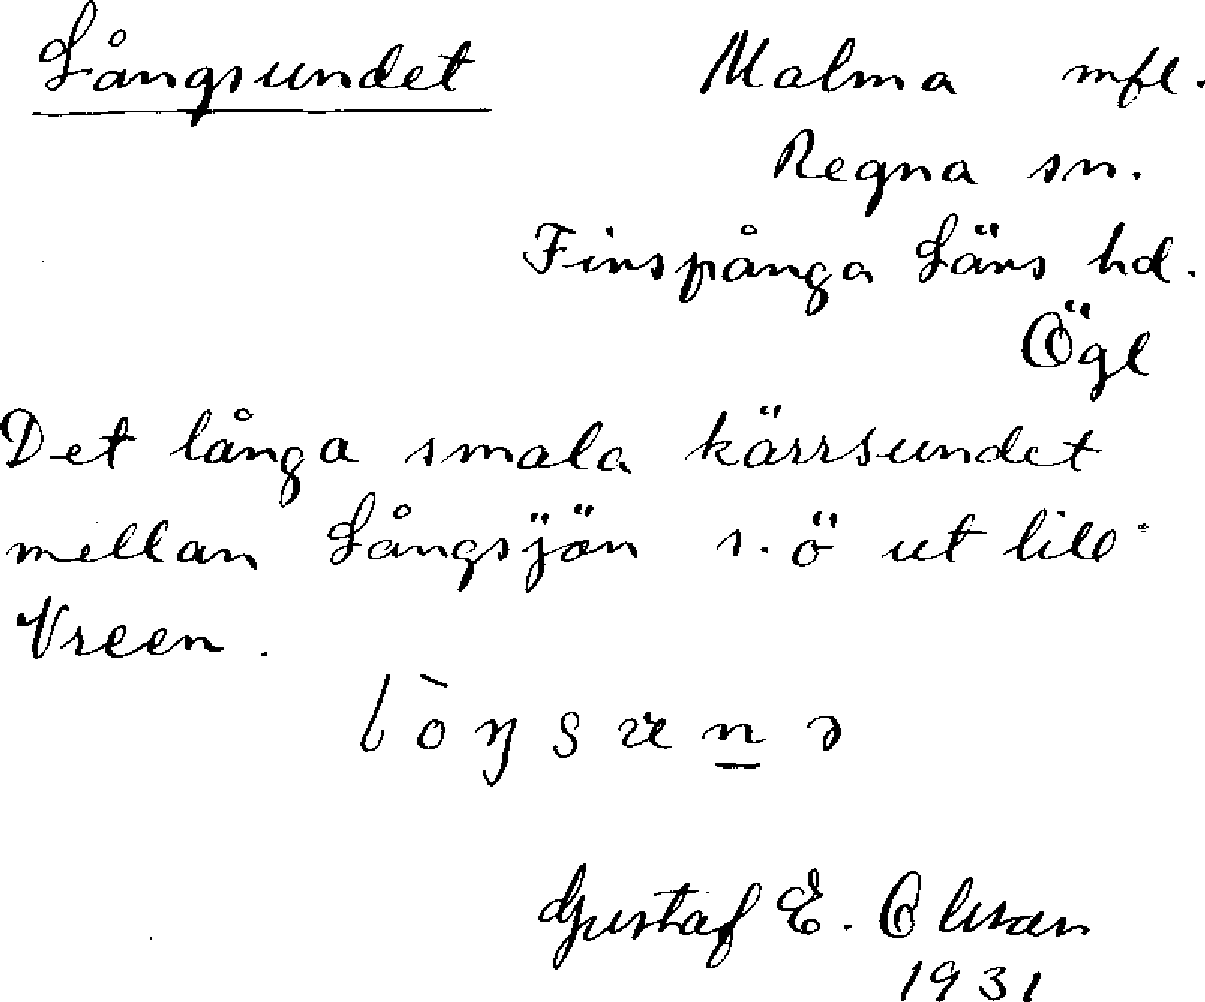 Långsundet Malma mfl.
Regna sn.
Finspånga Läns hd.
Ögl
Det långa smala kärrsundet
mellan Långsjön s. ö ut till
Vreen.
Gustaf E. Olsson
1931